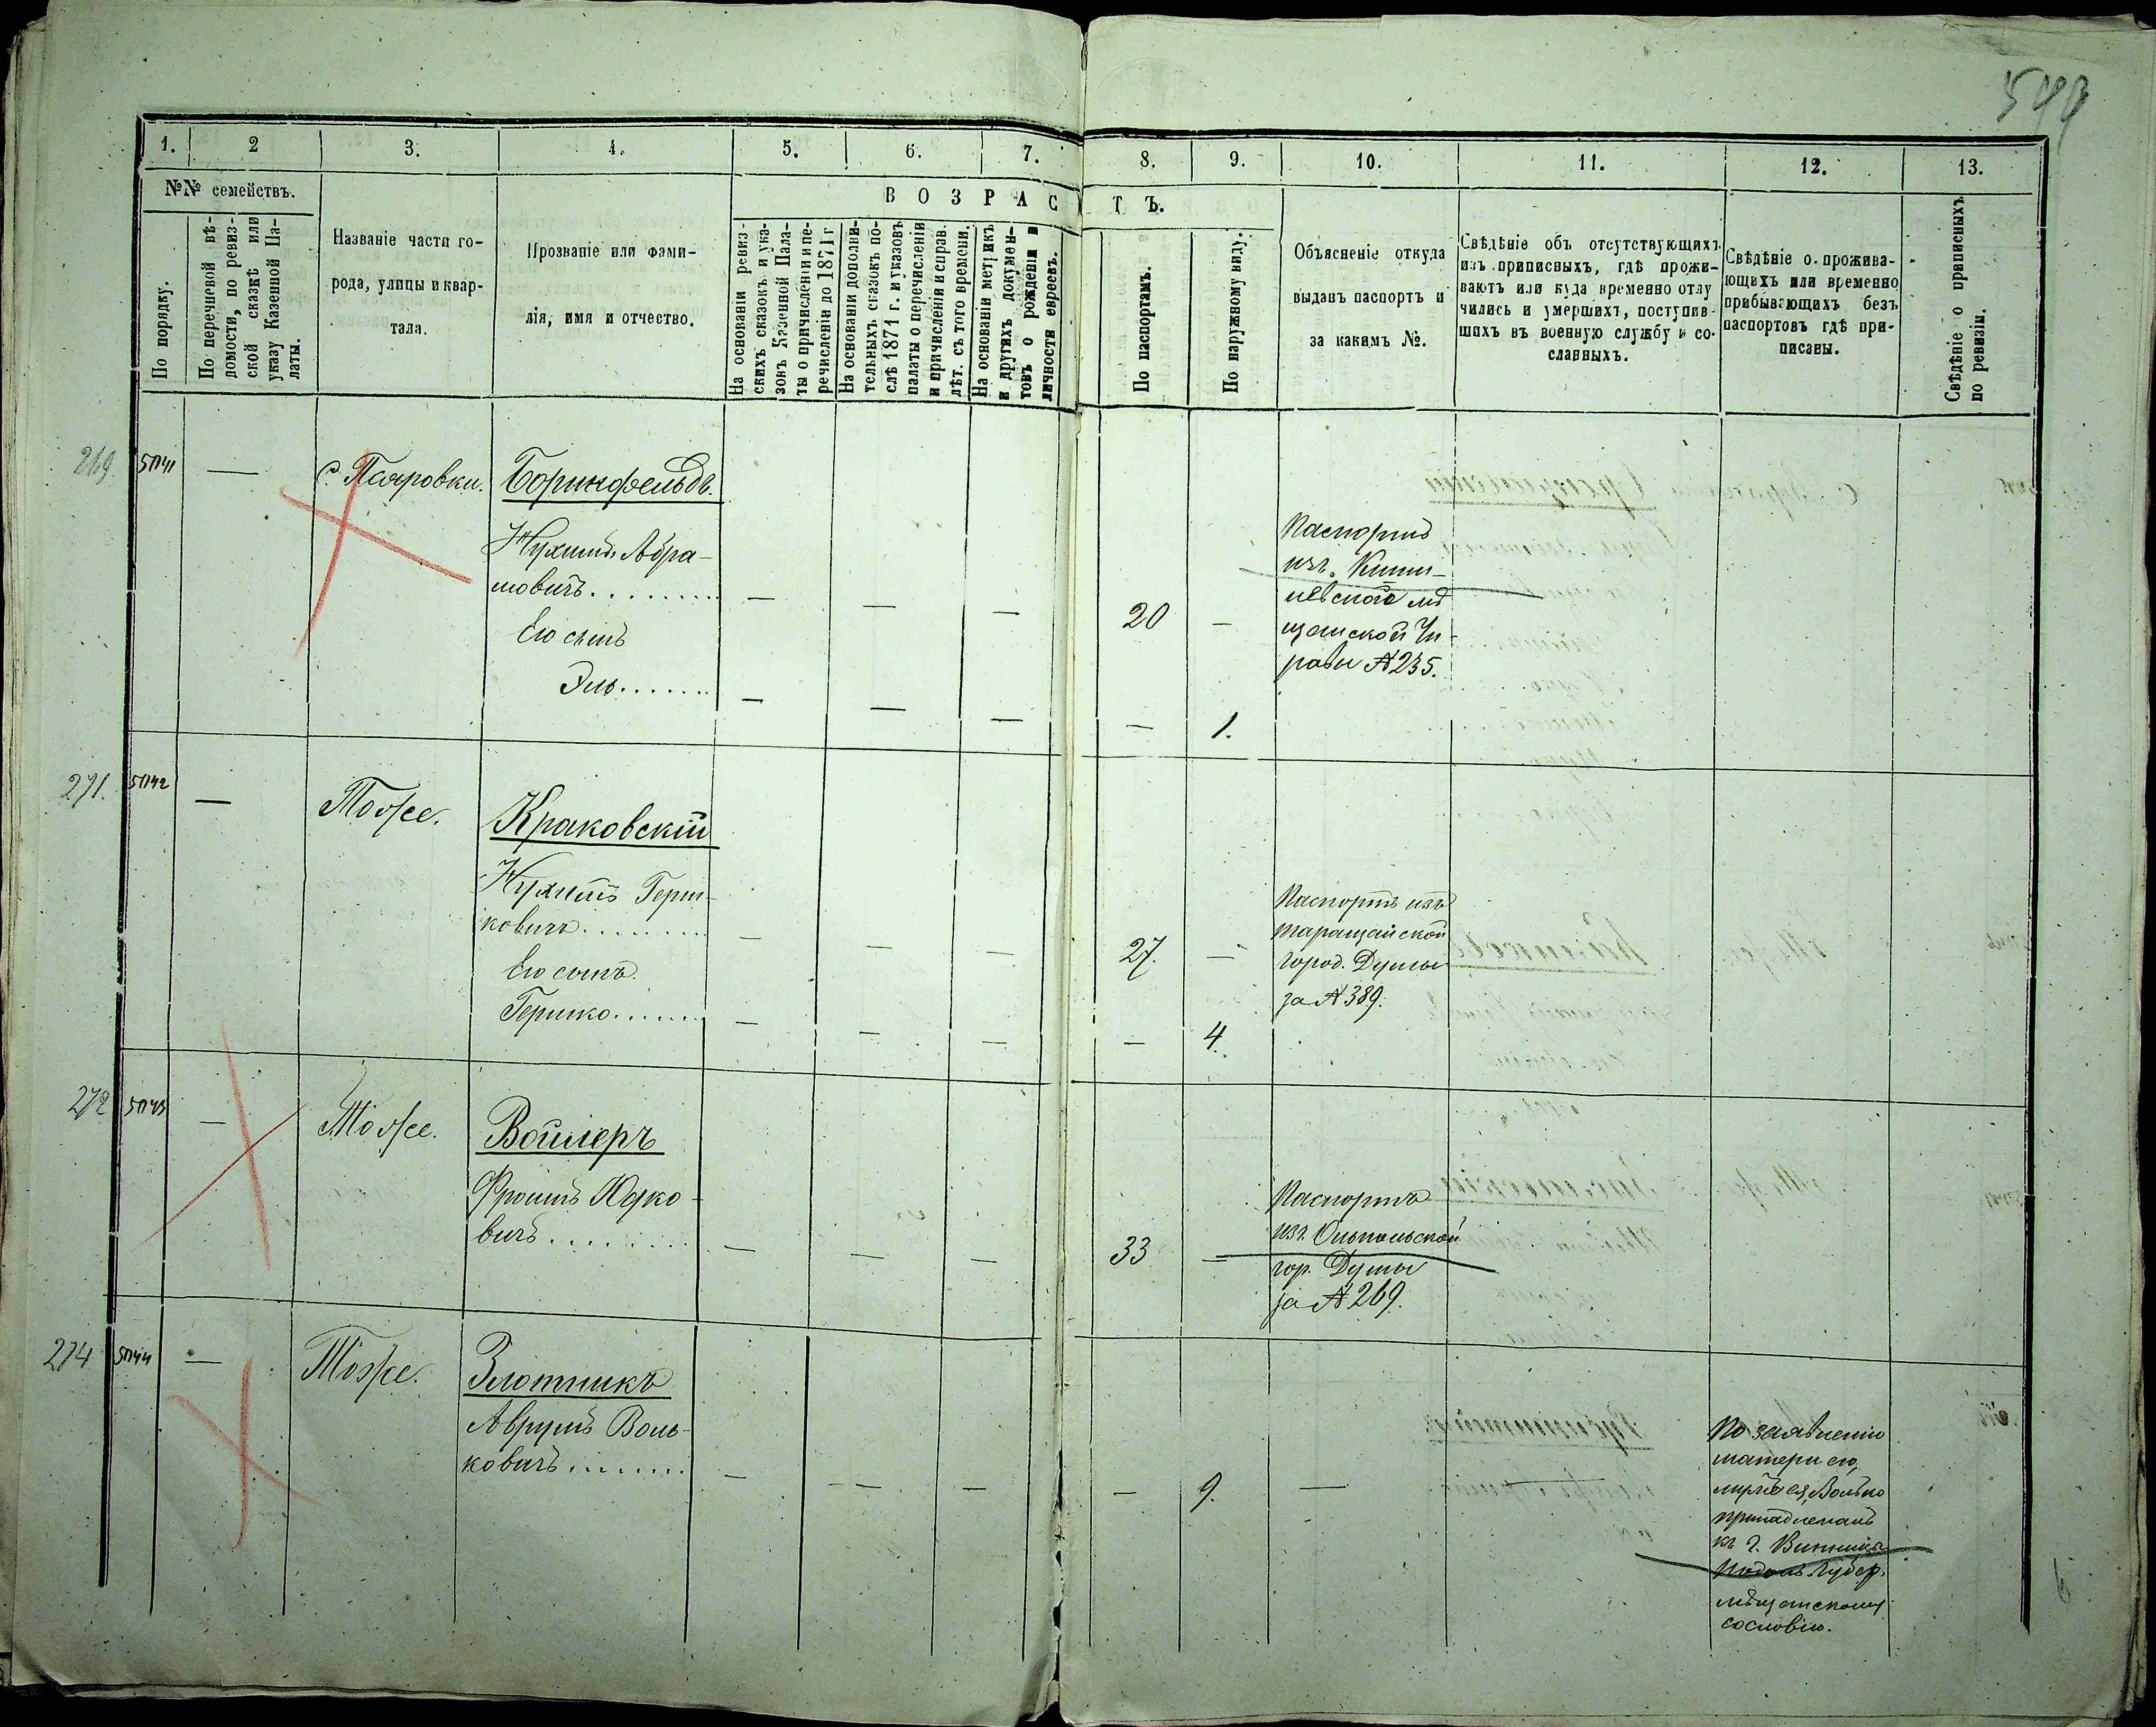 1. 2 3. 4. 5. 6. 7. 8. 9. 10. 11. 12. 13.
№№ семействъ.
По порядку.
По перечневой вѣ-
домости, по ревиз-
ской сказкѣ или
указу Казенной Па-
латы.
Названіе части го-
рода, улицы и квар-
тала.
Прозваніе или фами-
лія, имя и отчество.
ВОЗРАСТЪ.
На основаніи ревиз-
скихъ сказокъ и ука-
зокъ Казенной Пала-
ты о причисленіи и пе-
речисленіи до 1871 г
На основаніи дополни-
тельныхъ сказокъ по-
слѣ 1871 г. и указовъ
палаты о перечисленіи
и причисленіи и справ.
лѣт. съ того времени.
На основаніи метрикъ
и другихъ докумен-
товъ о рожденіи и
личности евреевъ.
По паспортамъ.
По наружному виду.
Объясненіе откуда
выданъ паспортъ и
за какимъ №.
Свѣдѣніе объ отсутствующихъ
изъ приписныхъ, гдѣ прожи-
ваютъ или куда временно отлу
чились и умершихъ, поступив-
шихъ въ военную службу и со-
сланныхъ.
Свѣдѣніе о прожива-
ющихъ или временно
прибывающихъ безъ
паспортовъ гдѣ при-
писаны.
Свѣдѣніе о приписныхъ
по ревизіи.
269. — с. Псяровки. Боринфельдъ.
Нухимъ Абра-
мовичъ......... — — — 20 —
Его сынъ
Эль....... — — — — 1.
Паспортъ
изъ Киши-
невской мѣ
щанской Уп-
равы № 235.
271. — Тоже. Краковскій
Нухимъ Герш-
ковичъ......... — — — 27. —
Его сынъ.
Гершко....... — — — — 4.
Паспортъ изъ
таращанской
город. Думы
за № 389.
272 — Тоже.
Фроимъ Юдко-
вичъ......... — — — 33 —
Паспортъ
изъ Ольгопольской
гор. Думы
за № 269.
274 — Тоже. Злотникъ
Аврумъ Воль-
ковичъ....... — — — — 9. —
По заявленію
матери его,
Волько
принадлежалъ
къ г. Винница
Подоль. Губер.
мѣщанскому
сословію.